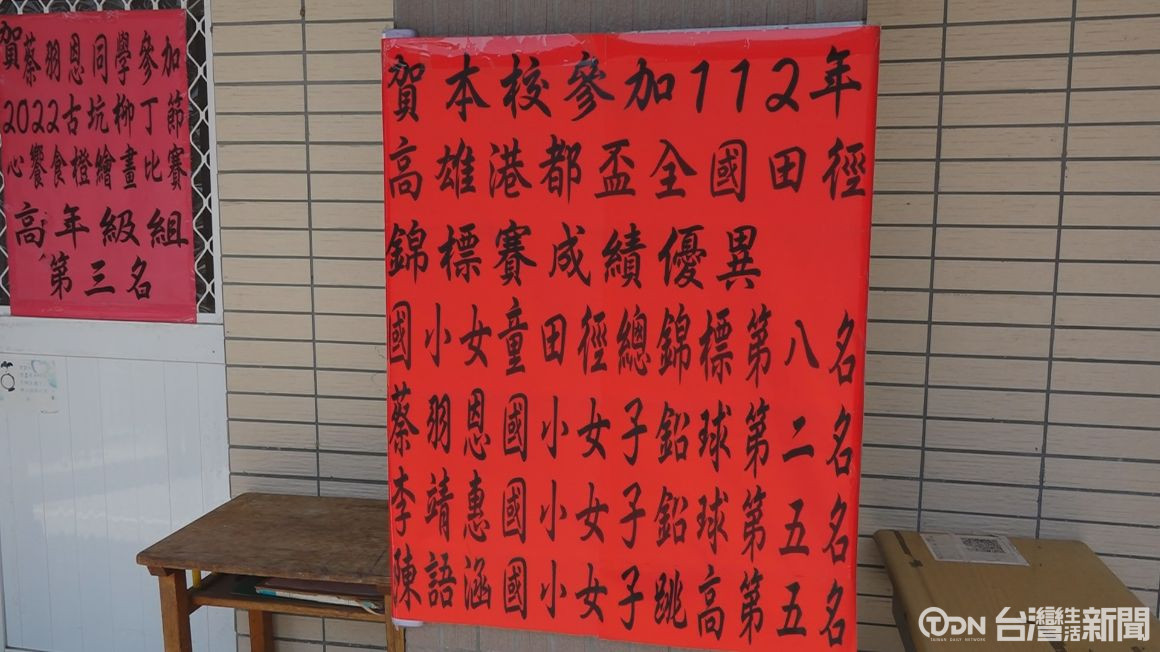 賀蔡羽恩同學參加
2022古坑柳丁節
心饗食橙繪畫比賽
高年級組
第三名
賀本校參加112年
高雄港都盃全國田徑
錦標賽成績優異
國小女童田徑總錦標第八名
蔡羽恩國小女子鉛球第二名
李靖惠國小女子鉛球第五名
陳語涵國小女子跳高第五名
TDN 台灣生活新聞
TAIWAN DAILY NETWORK